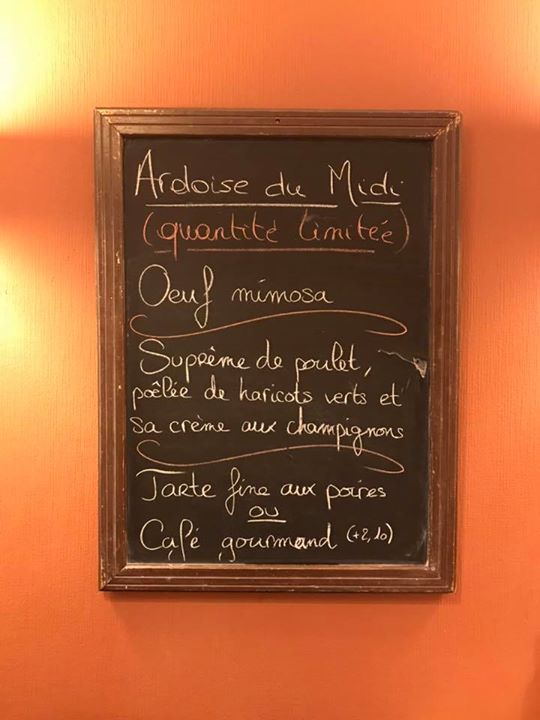 Ardoise du Midi
(quantité limitée)
Oeuf mimosa
Suprême de poulet,
poêlée de haricots verts et
sa crème aux champignons
Tarte fine aux poires
ou
Café gourmand (+2,10)